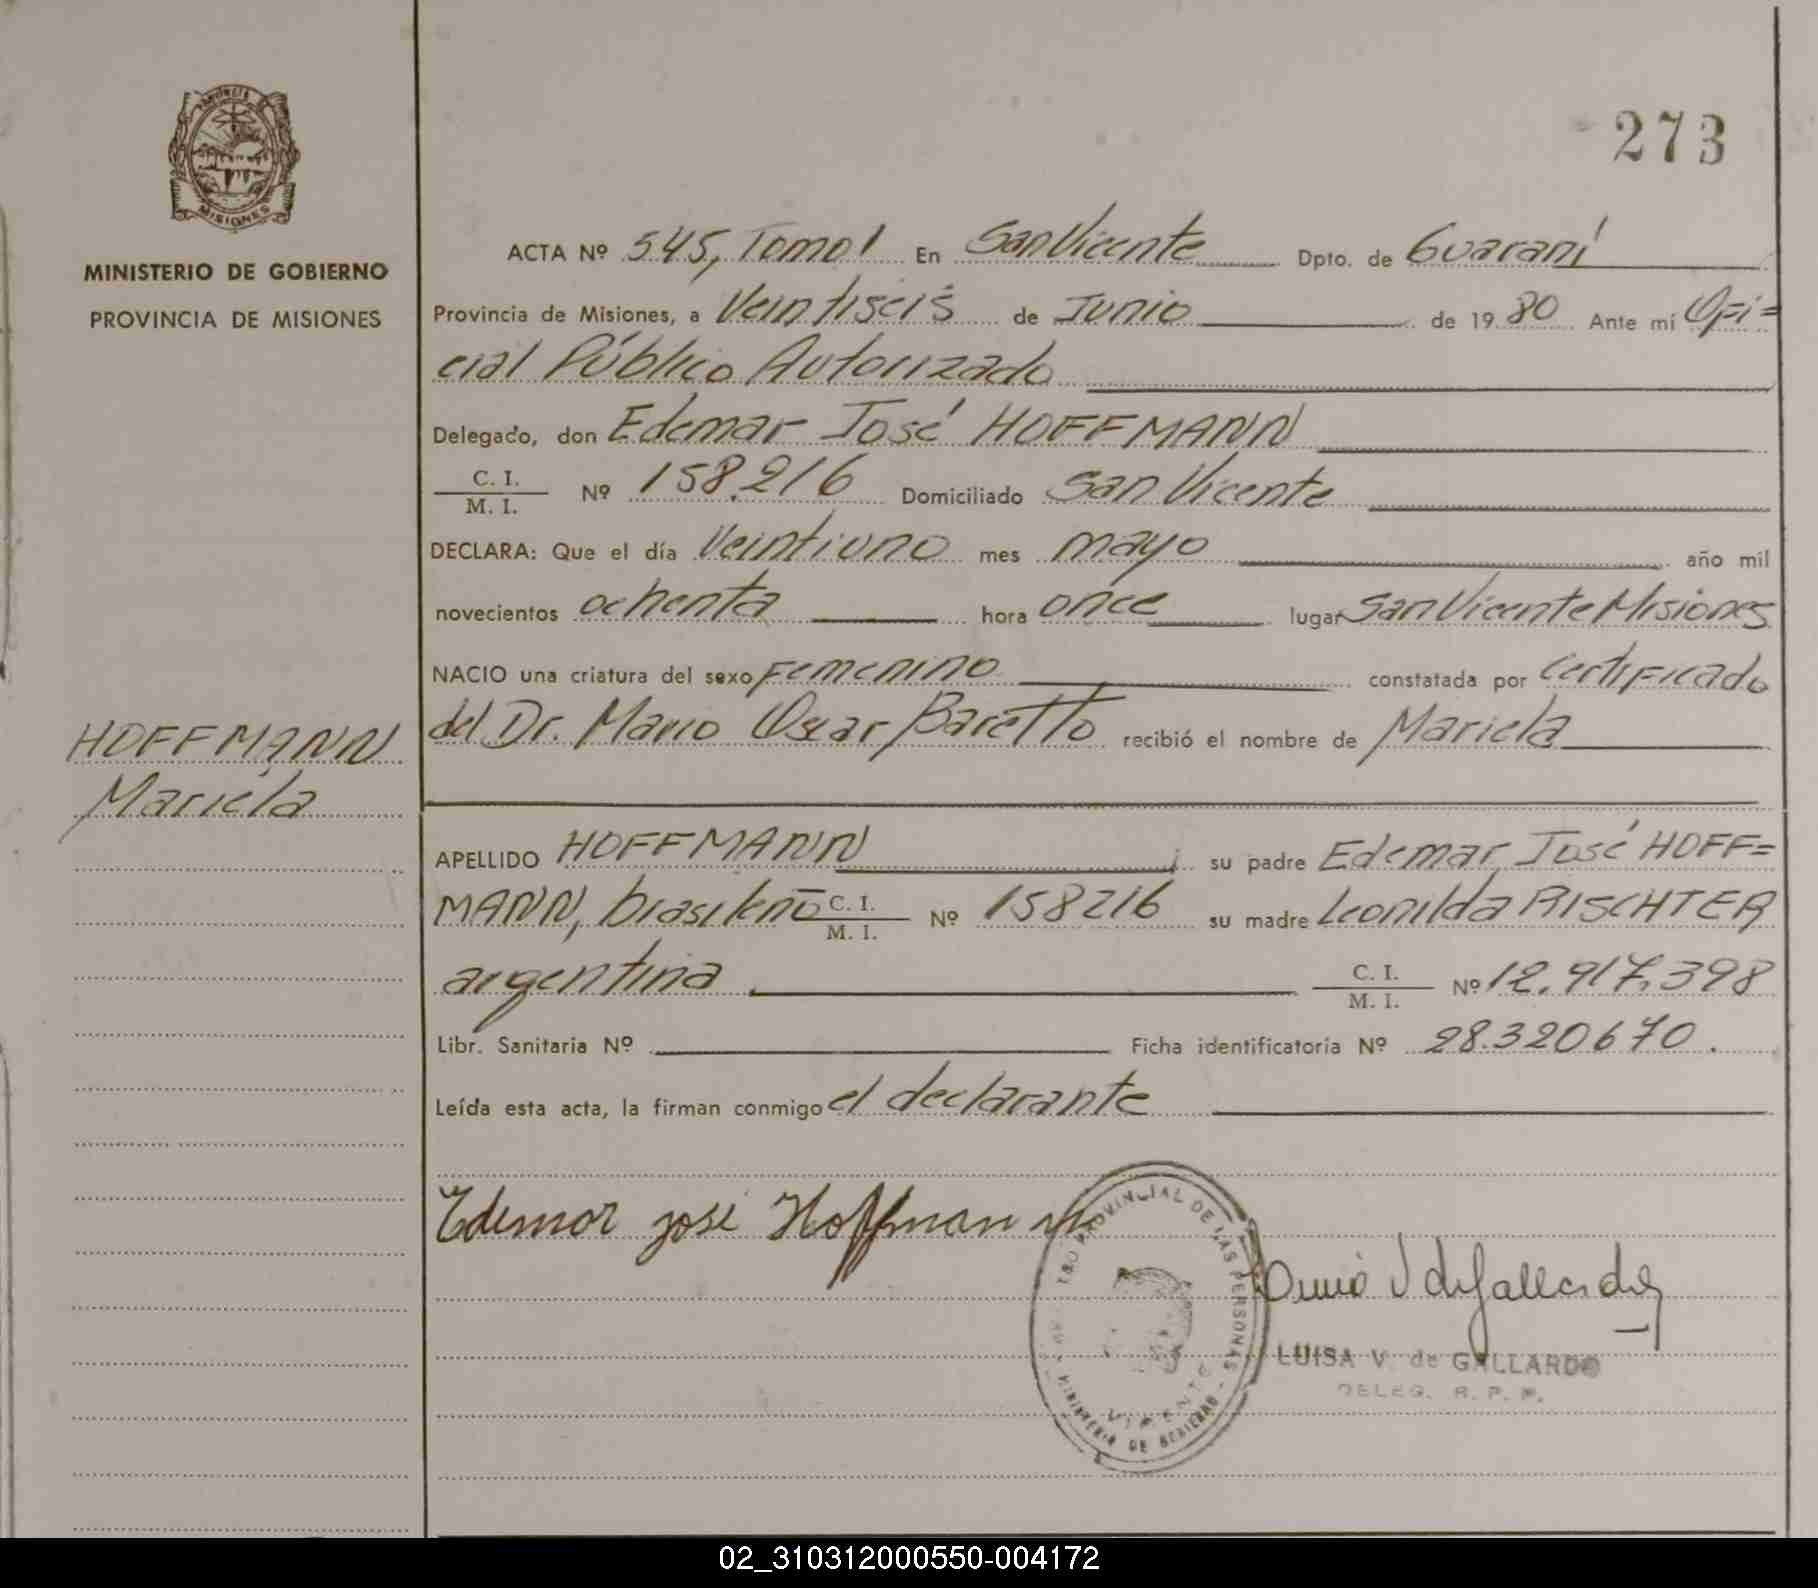 273
PROVINCIA DE
MISIONES
MINISTERIO DE GOBIERNO
PROVINCIA DE MISIONES
ACTA Nº 545, Tomo I En San Vicente Dpto. de Guaraní
Provincia de Misiones, a Veintiseis de Junio de 19 80 Ante mí Ofi=
cial Público Autorizado
Delegado, don Edemar José HOFFMANN
C. I.
M. I. Nº 158.216 Domiciliado San Vicente
DECLARA: Que el día Veintiuno mes mayo año mil
novecientos ochenta hora once lugar San Vicente Misiones
NACIO una criatura del sexo Femenino constatada por Certificado
del Dr. Mario Oscar Baretto recibió el nombre de Mariela
HOFFMANN
Mariela
APELLIDO HOFFMANN ; su padre Edemar José HOFF=
MANN, brasileño C. I.
M. I. Nº 158216 su madre Leonilda RISCHTER
argentina C. I.
M. I. Nº 12.917.398
Libr. Sanitaria Nº Ficha identificatoria Nº 28.320670.
Leída esta acta, la firman conmigo el declarante
Edemar josé Hoffmann
PROVINCIAL DE LAS PERSONAS
MINISTERIO DE GOBIERNO
VICENTE
LUISA V. de GALLARDO
DELEG. R. P. P.
02_310312000550-004172